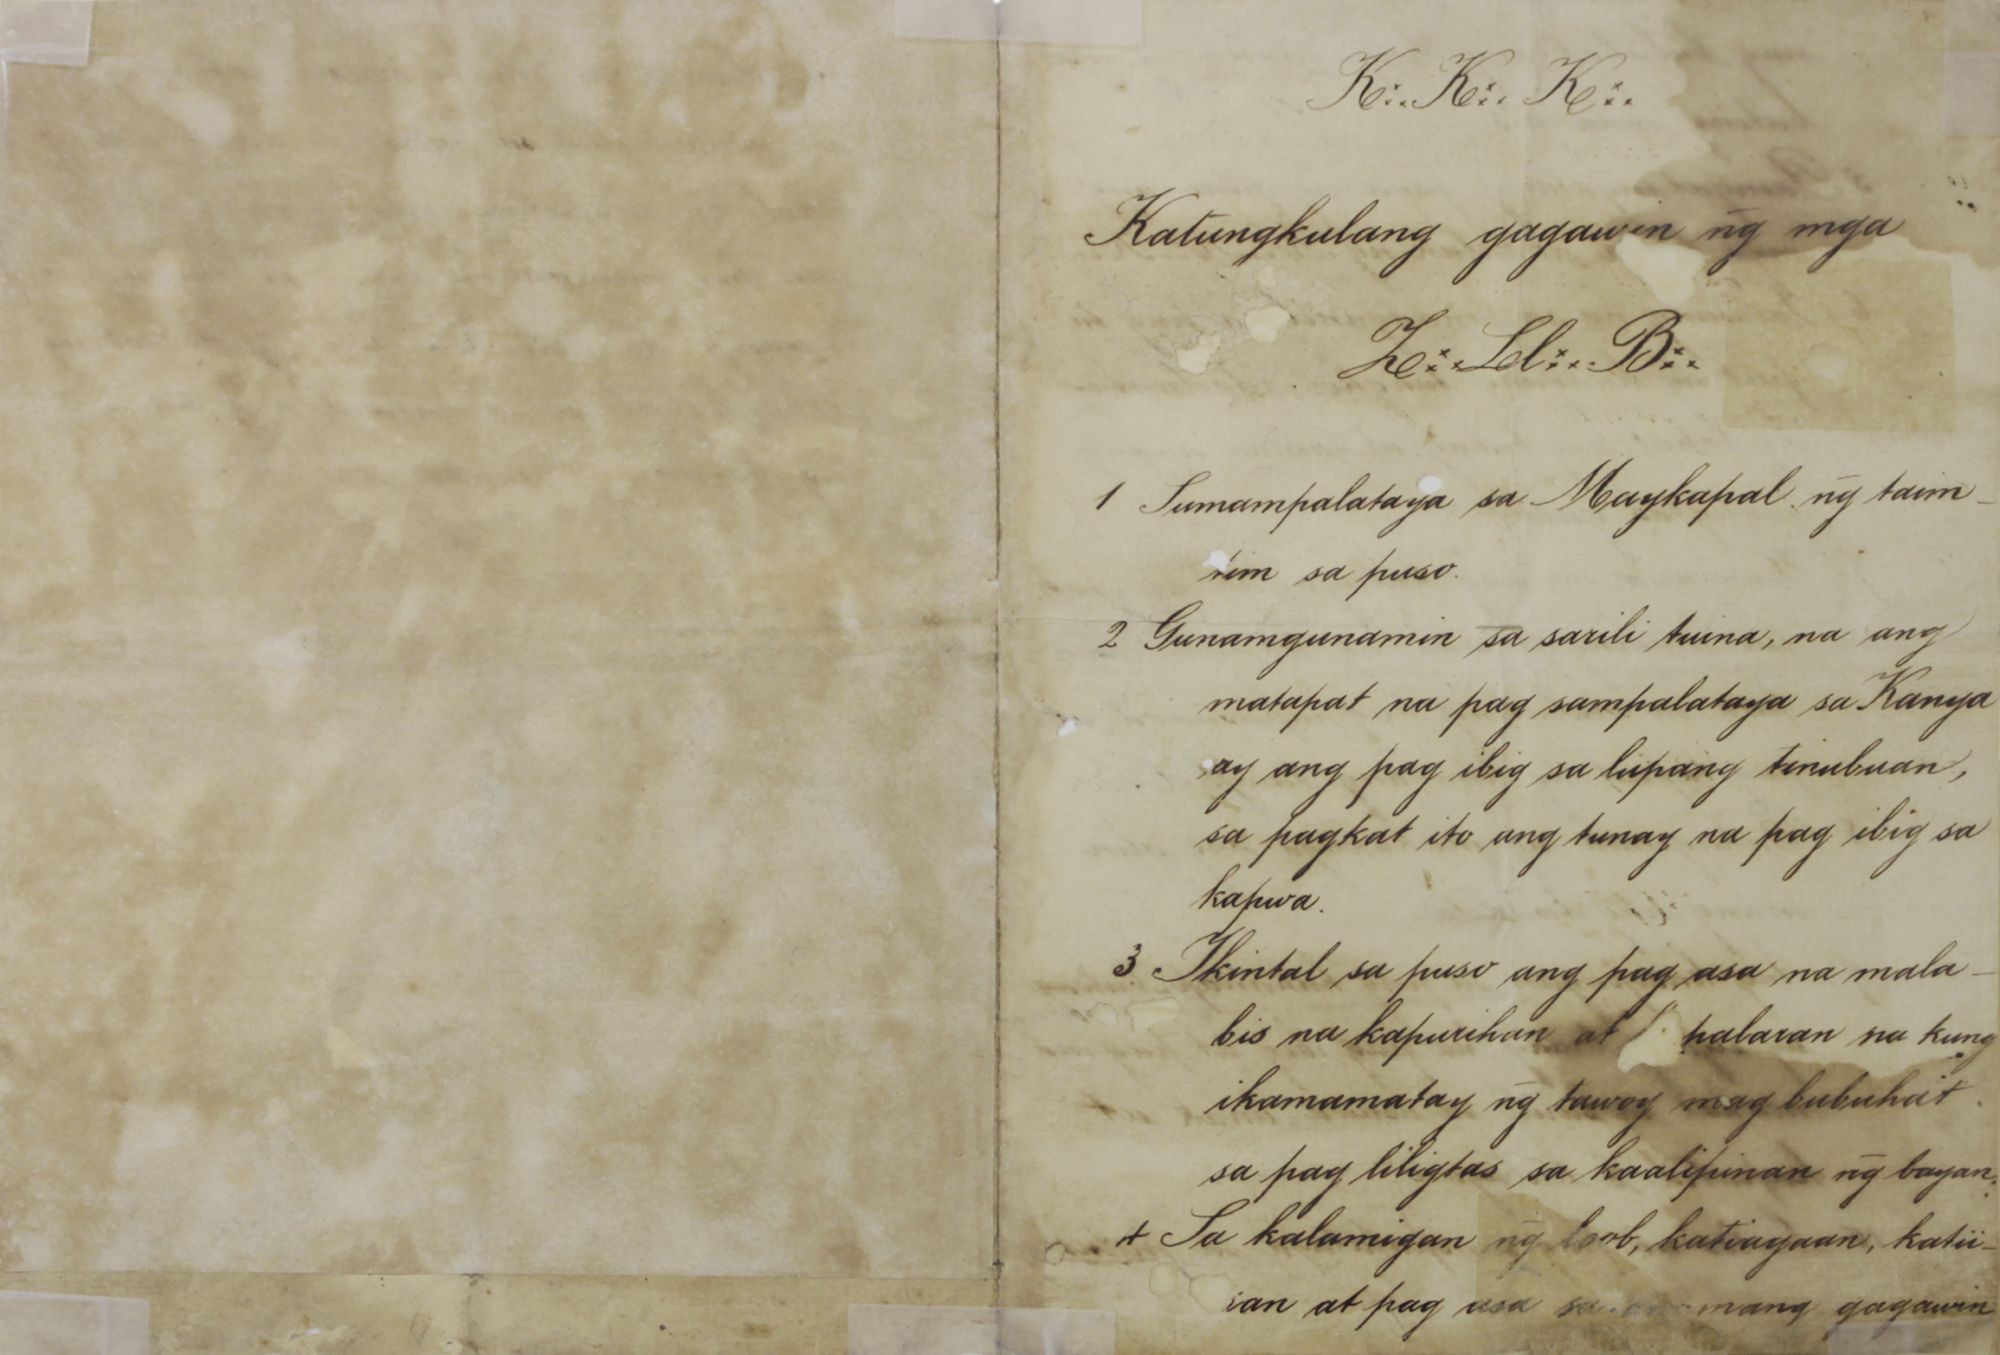 K∴ K∴ K∴
Katungkulang gagawin n̄g mga
Z∴ Ll∴ B∴
1 Sumampalataya sa Maykapal n̄g taim-
tim sa puso.
2 Gunamgunamin sa sarili tuina, na ang
matapat na pag sampalataya sa Kanya
ay ang pag ibig sa lupang tinubuan,
sa pagkat ito ang tunay na pag ibig sa
kapwa.
3 Ikintal sa puso ang pag asa na mala-
bis na kapurihan at palaran na kung
ikamamatay n̄g tawoy mag bubuhat
sa pag liligtas sa kaalipinan n̄g bayan.
4 Sa kalamigan n̄g loob, katiagaan, katii-
san at pag asa sa mang gagawin